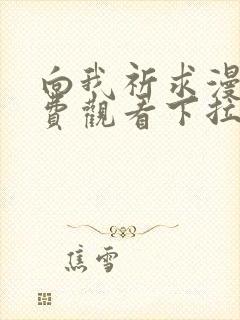 向我祈求漫
费觀看下拉
焦雪